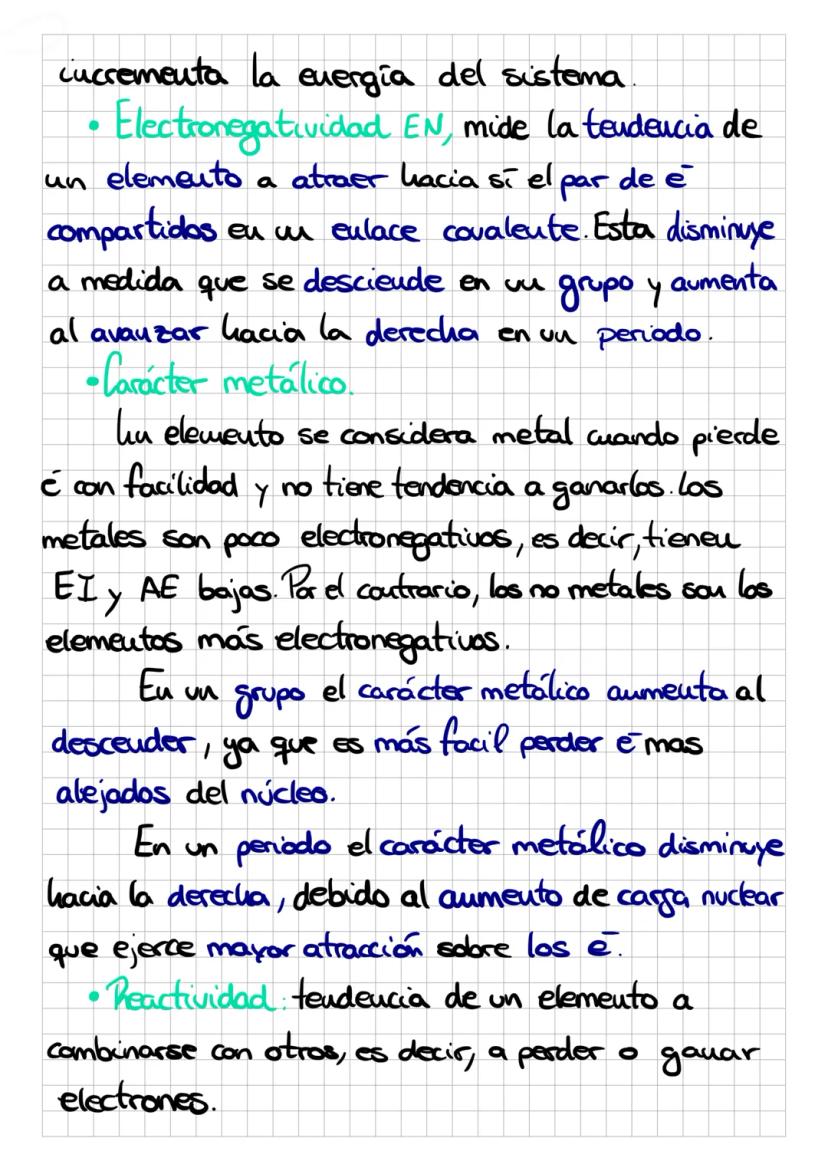 incrementa la energía del sistema.
• Electronegatividad EN, mide la tendencia de
un elemento a atraer hacia sí el par de e⁻
compartidos en un enlace covalente. Esta disminuye
a medida que se desciende en un grupo y aumenta
al avanzar hacia la derecha en un periodo.
• Carácter metálico.
Un elemento se considera metal cuando pierde
e⁻ con facilidad y no tiene tendencia a ganarlos. Los
metales son poco electronegativos, es decir, tienen
EI y AE bajas. Por el contrario, los no metales son los
elementos más electronegativos.
En un grupo el carácter metálico aumenta al
descender, ya que es más facil perder e⁻ mas
alejados del núcleo.
En un periodo el carácter metálico disminuye
hacia la derecha, debido al aumento de carga nuclear
que ejerce mayor atracción sobre los e⁻.
• Reactividad: tendencia de un elemento a
combinarse con otros, es decir, a perder o ganar
electrones.